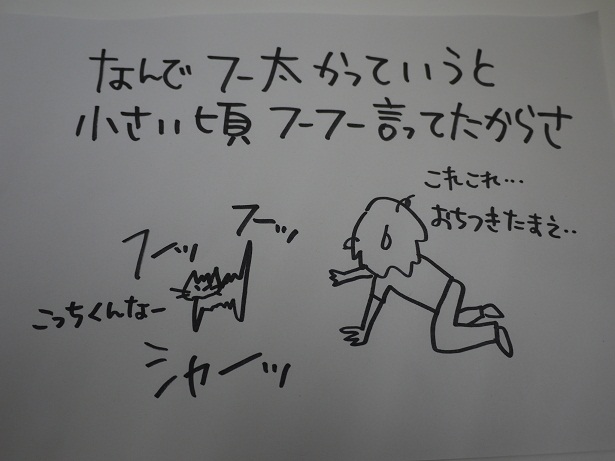 なんでフー太かっていうと
小さい頃フーフー言ってたからさ
これこれ…
おちつきたまえ‥
フーッ
フーッ
こっちくんなー
シャーッ